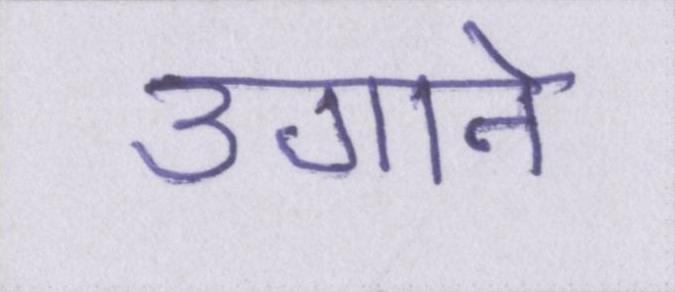 उगाने